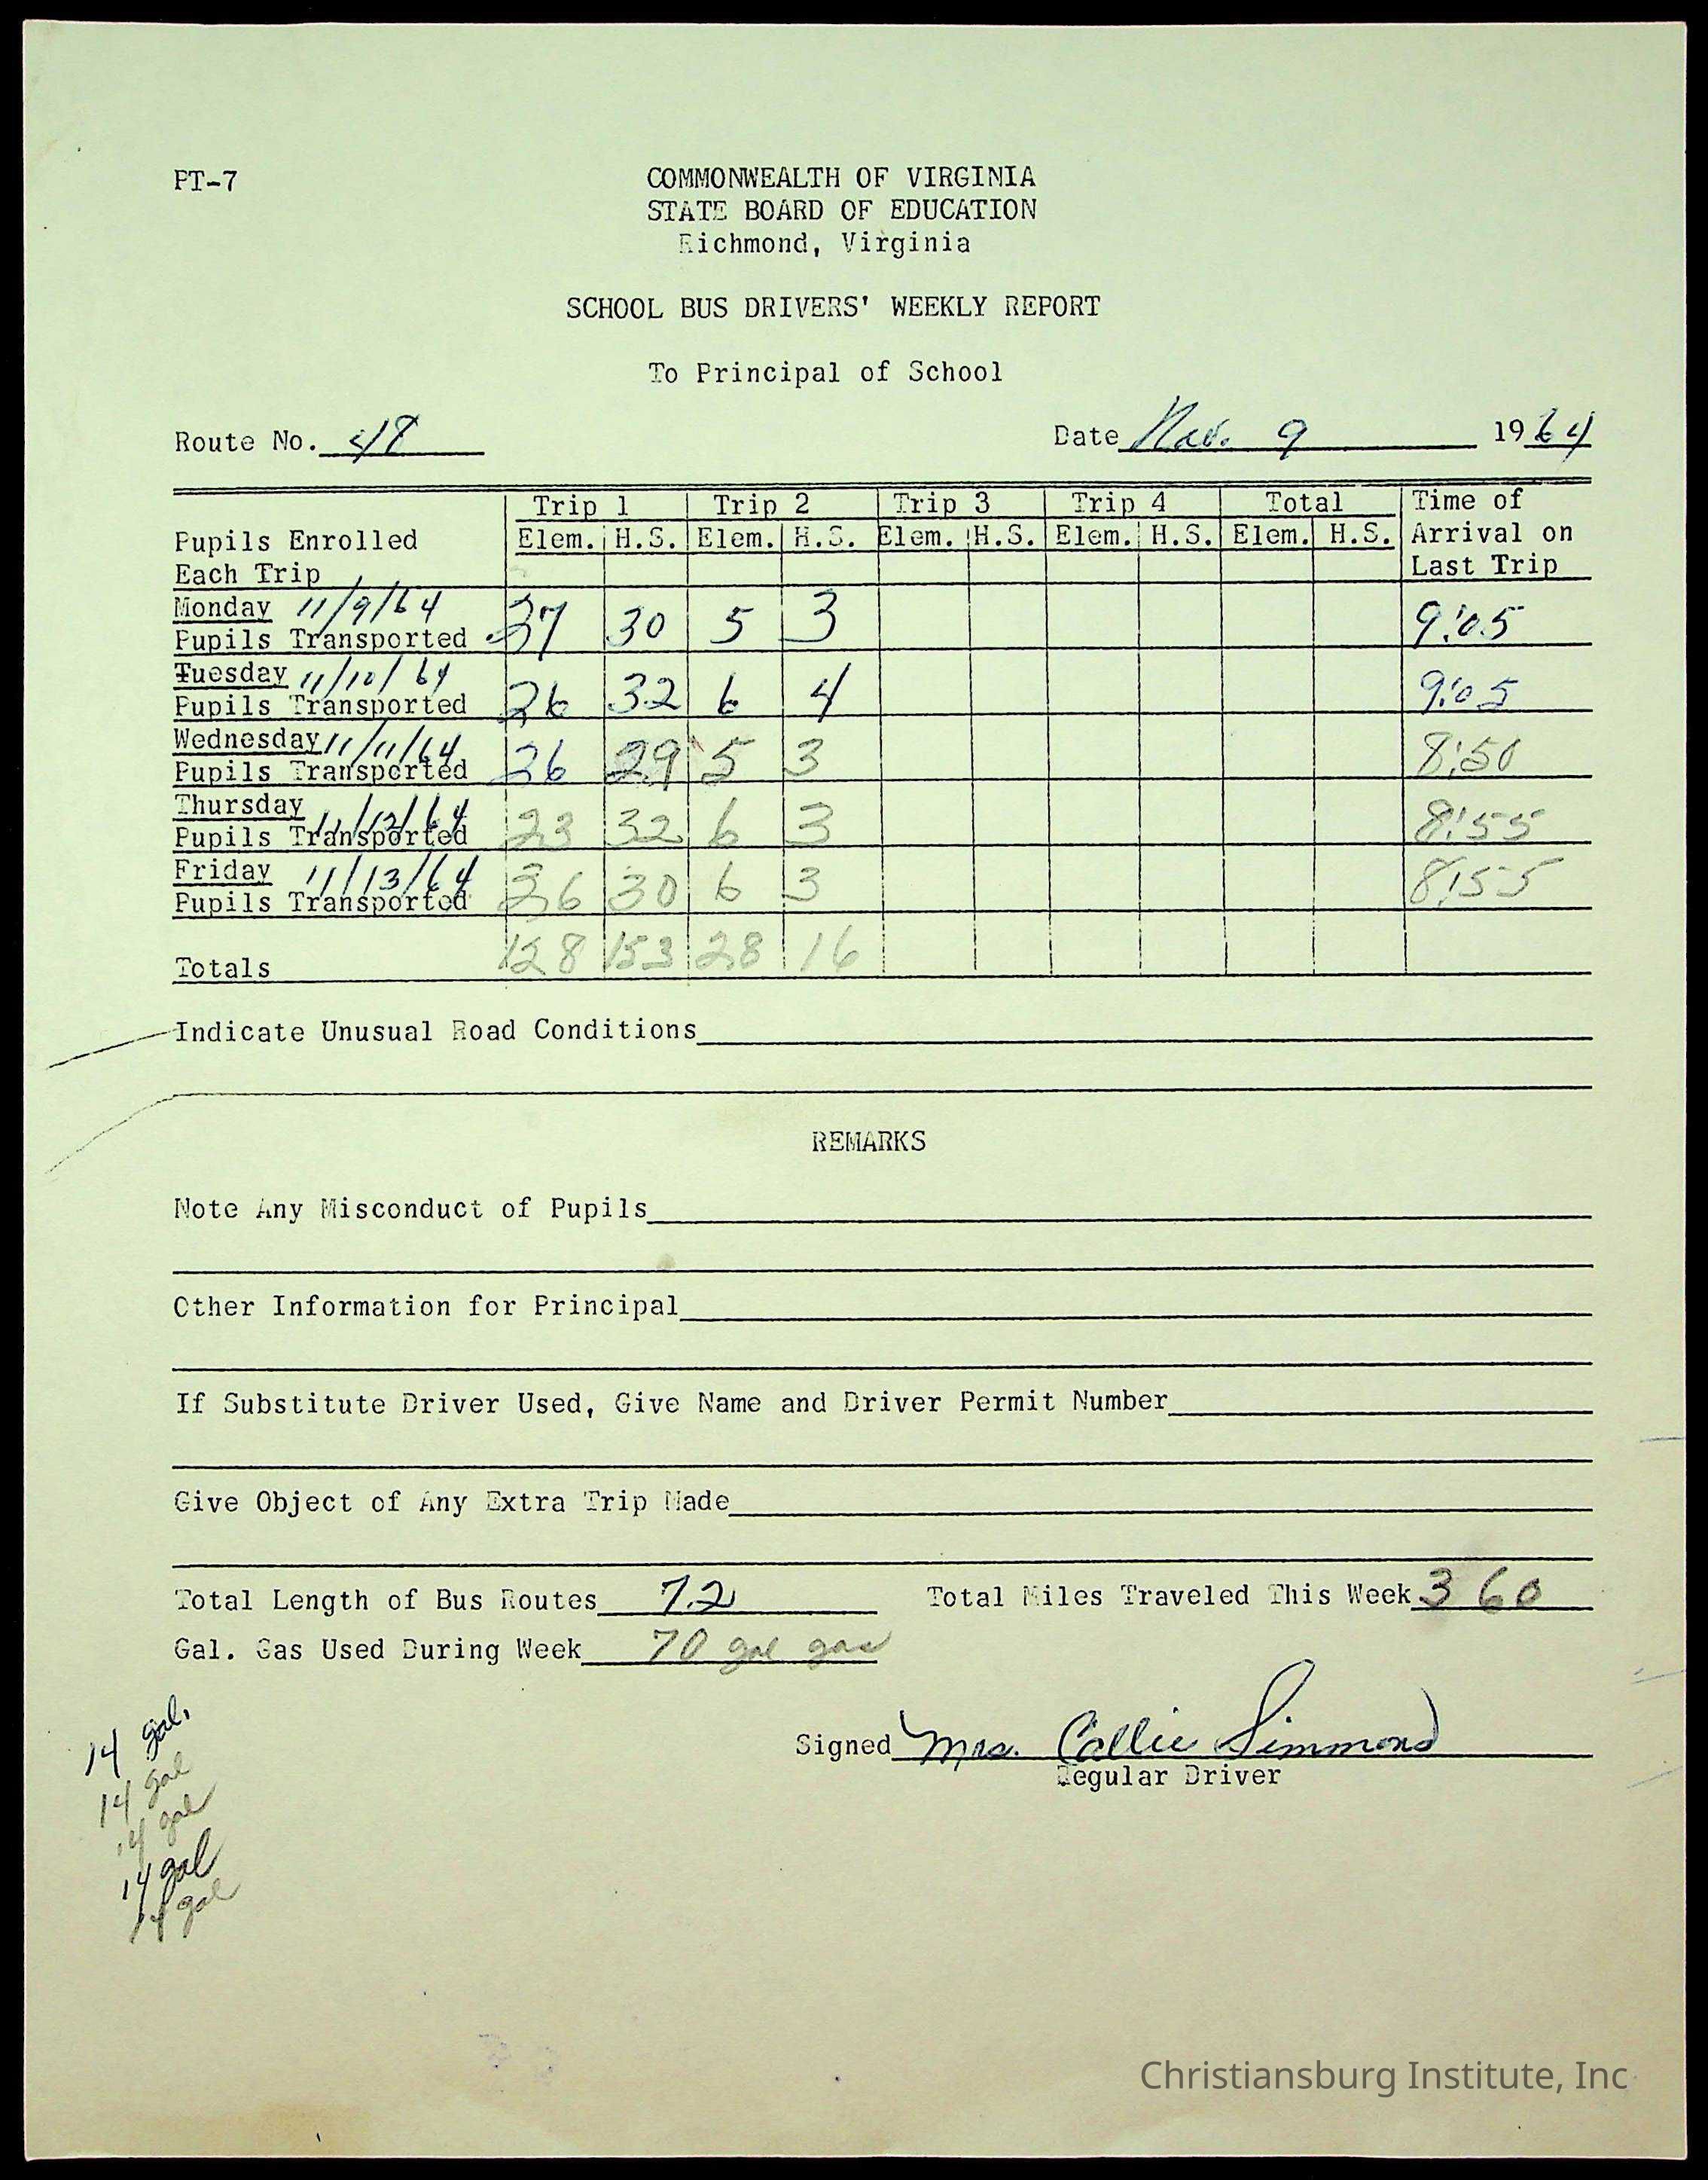 PT-7
COMMONWEALTH OF VIRGINIA
STATE BOARD OF EDUCATION
Richmond, Virginia
SCHOOL BUS DRIVERS' WEEKLY REPORT
To Principal of School
Route No. 48 Date Nov. 9 1964
Trip 1 Trip 2 Trip 3 Trip 4 Total Time of
Pupils Enrolled Elem. H.S. Elem. H.S. Elem. H.S. Elem. H.S. Elem. H.S. Arrival on
Each Trip Last Trip
Monday 11/9/64
Pupils Transported 27 30 5 3 9:05
Tuesday 11/10/64
Pupils Transported 26 32 6 4 9:05
Wednesday 11/11/64
Pupils Transported 26 29 5 3 8:50
Thursday 11/12/64
Pupils Transported 23 32 6 3 8:55
Friday 11/13/64
Pupils Transported 26 30 6 3 8:55
Totals 128 153 28 16
Indicate Unusual Road Conditions
REMARKS
Note Any Misconduct of Pupils
Other Information for Principal
If Substitute Driver Used, Give Name and Driver Permit Number
Give Object of Any Extra Trip Made
Total Length of Bus Routes 72 Total Miles Traveled This Week 360
Gal. Gas Used During Week 70 gal gas
Signed Mrs. Callie Simmons
Regular Driver
14 gal.
14 gal
14 gal
14 gal
14 gal
Christiansburg Institute, Inc